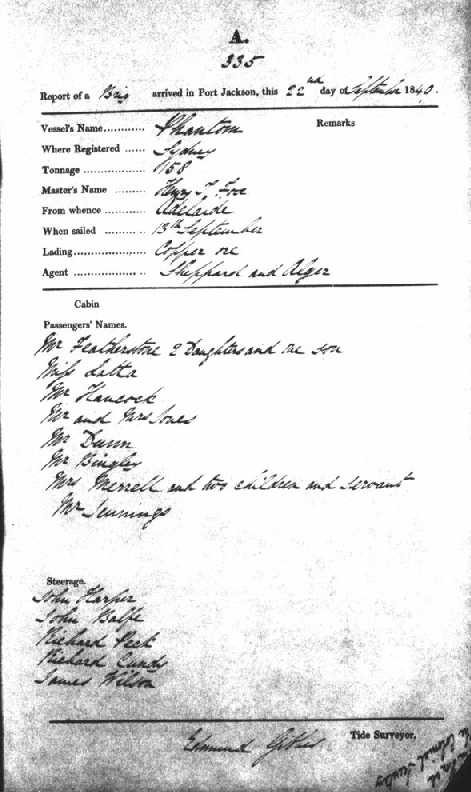 A.
335
Report of a Brig arrived in Port Jackson, this 22nd day of September 1840.
Vessel's Name............ Phantom Remarks
Where Registered ...... Sydney
Tonnage .................. 158
Master's Name ......... Henry T. Fox
From whence ............ Adelaide
When sailed ............ 13th September
Lading..................... Copper ore
Agent ..................... Sheppard and Alger
Cabin
Passengers' Names.
Mr Featherstone 2 Daughters and one son
Miss Latta
Mr Hancock
Mr and Mrs Jones
Mr Dunn
Mr Bingley
Mrs Merrell and two children and servant
Mr Jennings
Steerage.
John Harper
John Balfe
Richard Peck
Richard Cundy
James Wilson
Edmund Gibbes Tide Surveyor.